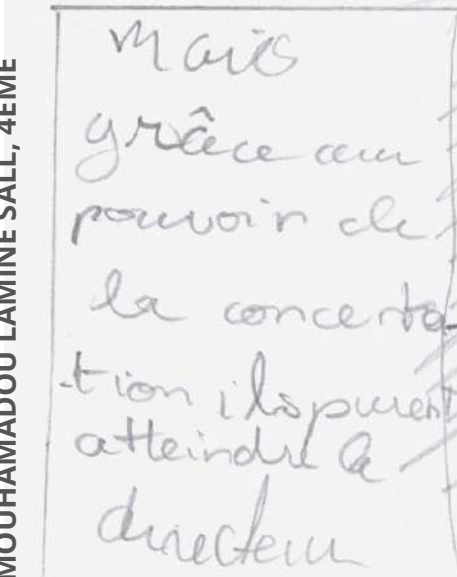 MOUHAMADOU LAMINE SALL, 4EME
Mais
grâce au
pouvoir de
la concerta-
tion ils purent
atteindre le
directeur